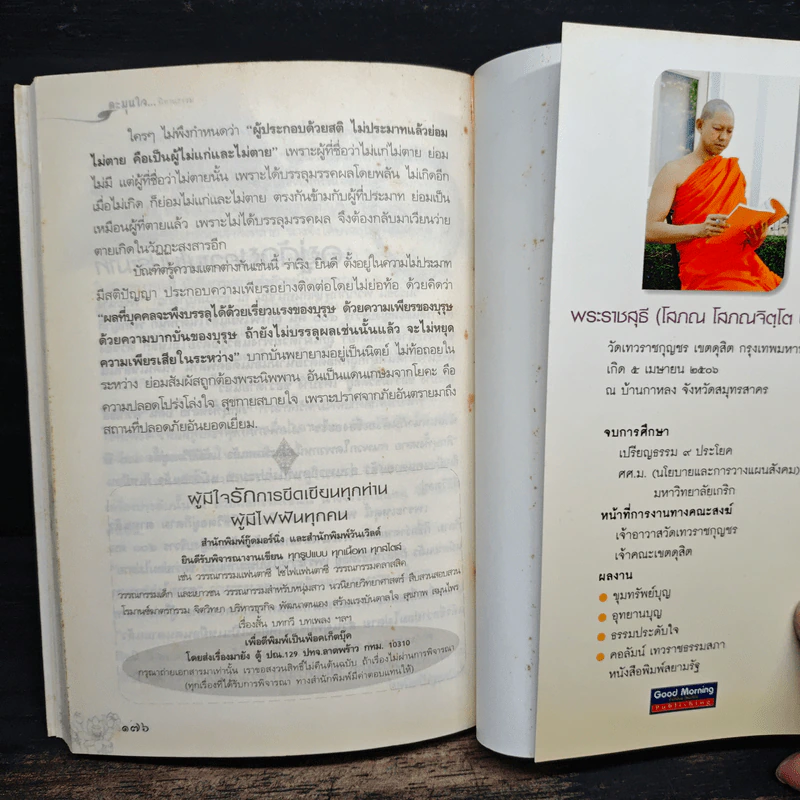 ละมุนใจ...
ใครๆ ไม่พึงกำหนดว่า "ผู้ประกอบด้วยสติ ไม่ประมาทแล้วย่อม
ไม่ตาย คือเป็นผู้ไม่แก่และไม่ตาย" เพราะผู้ที่ชื่อว่าไม่แก่ไม่ตาย ย่อม
ไม่มี แต่ผู้ที่ชื่อว่าไม่ตายนั้น เพราะได้บรรลุมรรคผลโดยพลัน ไม่เกิดอีก
เมื่อไม่เกิด ก็ย่อมไม่แก่และไม่ตาย ตรงกันข้ามกับผู้ที่ประมาท ย่อมเป็น
เหมือนผู้ที่ตายแล้ว เพราะไม่ได้บรรลุมรรคผล จึงต้องกลับมาเวียนว่าย
ตายเกิดในวัฏฏะสงสารอีก
บัณฑิตรู้ความแตกต่างกันเช่นนี้ ร่าเริง ยินดี ตั้งอยู่ในความไม่ประมาท
มีสติปัญญา ประกอบความเพียรอย่างติดต่อโดยไม่ย่อท้อ ด้วยคิดว่า
"ผลที่บุคคลจะพึงบรรลุได้ด้วยเรี่ยวแรงของบุรุษ ด้วยความเพียรของบุรุษ
ด้วยความบากบั่นของบุรุษ ถ้ายังไม่บรรลุผลเช่นนั้นแล้ว จะไม่หยุด
ความเพียรเสียในระหว่าง" บากบั่นพยายามอยู่เป็นนิตย์ ไม่ท้อถอยใน
ระหว่าง ย่อมสัมผัสถูกต้องพระนิพพาน อันเป็นแดนเกษมจากโยคะ คือ
ความปลอดโปร่งโล่งใจ สุขกายสบายใจ เพราะปราศจากภัยอันตรายมาถึง
สถานที่ปลอดภัยอันยอดเยี่ยม.
ผู้มีใจรักการขีดเขียนทุกท่าน
ผู้มีไฟฝันทุกคน
สำนักพิมพ์กู๊ดมอร์นิ่ง และสำนักพิมพ์วันเวิลด์
ยินดีรับพิจารณางานเขียน ทุกรูปแบบ ทุกเนื้อหา ทุกสไตล์
เช่น วรรณกรรมแฟนตาซี ไซไฟแฟนตาซี วรรณกรรมคลาสสิค
วรรณกรรมเด็ก และเยาวชน วรรณกรรมสำหรับหนุ่มสาว นวนิยายวิทยาศาสตร์ สืบสวนสอบสวน
โรมานซ์ฆาตกรรม จิตวิทยา บริหารธุรกิจ พัฒนาตนเอง สร้างแรงบันดาลใจ สุขภาพ สมุนไพร
เรื่องสั้น บทกวี บทเพลง ฯลฯ
เพื่อตีพิมพ์เป็นพ็อคเก็ตบุ๊ค
โดยส่งเรื่องมายัง ตู้ ปณ.129 ปทจ.ลาดพร้าว กทม. 10310
กรุณาถ่ายเอกสารมาเท่านั้น เราขอสงวนสิทธิ์ไม่คืนต้นฉบับ ถ้าเรื่องไม่ผ่านการพิจารณา
(ทุกเรื่องที่ได้รับการพิจารณา ทางสำนักพิมพ์มีค่าตอบแทนให้)
๑๗๖
พระราชสุธี (โสภณ โสภณจิตฺโต
วัดเทวราชกุญชร เขตดุสิต กรุงเทพมหา
เกิด ๕ เมษายน ๒๕๐๖
ณ บ้านกาหลง จังหวัดสมุทรสาคร
จบการศึกษา
เปรียญธรรม ๙ ประโยค
ศศ.ม. (นโยบายและการวางแผนสังคม)
มหาวิทยาลัยเกริก
หน้าที่การงานทางคณะสงฆ์
เจ้าอาวาสวัดเทวราชกุญชร
เจ้าคณะเขตดุสิต
ผลงาน
ขุมทรัพย์บุญ
อุทยานบุญ
ธรรมประดับใจ
คอลัมน์ เทวราชธรรมสภา
หนังสือพิมพ์สยามรัฐ
Good Morning
Publishing